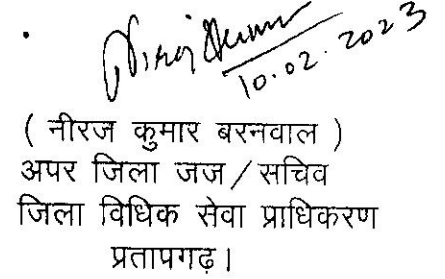 Niraj Kumar
10.02.2023
( नीरज कुमार बरनवाल )
अपर जिला जज / सचिव
जिला विधिक सेवा प्राधिकरण
प्रतापगढ़।